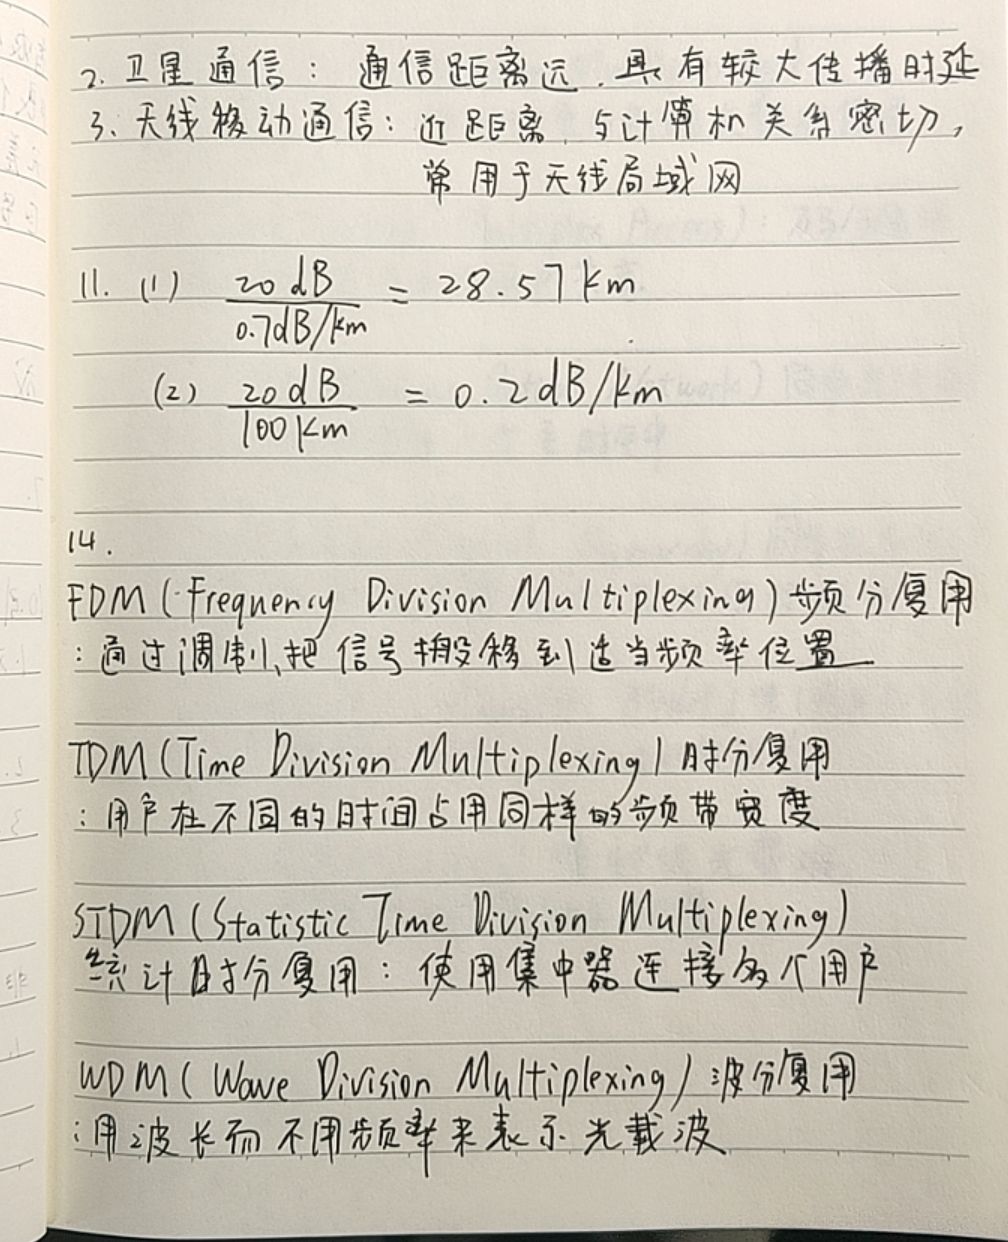 2. 卫星通信: 通信距离远, 具有较大传播时延
3. 无线移动通信: 近距离, 与计算机关系密切,
常用于无线局域网
11. (1) 20 dB / 0.7dB/km = 28.57 km
(2) 20 dB / 100 km = 0.2 dB/km
14.
FDM (Frequency Division Multiplexing) 频分复用
: 通过调制, 把信号搬移到适当频率位置
TDM (Time Division Multiplexing) 时分复用
: 用户在不同的时间占用同样的频带宽度
STDM (Statistic Time Division Multiplexing)
统计时分复用: 使用集中器连接多个用户
WDM (Wave Division Multiplexing) 波分复用
: 用波长而不用频率来表示光载波